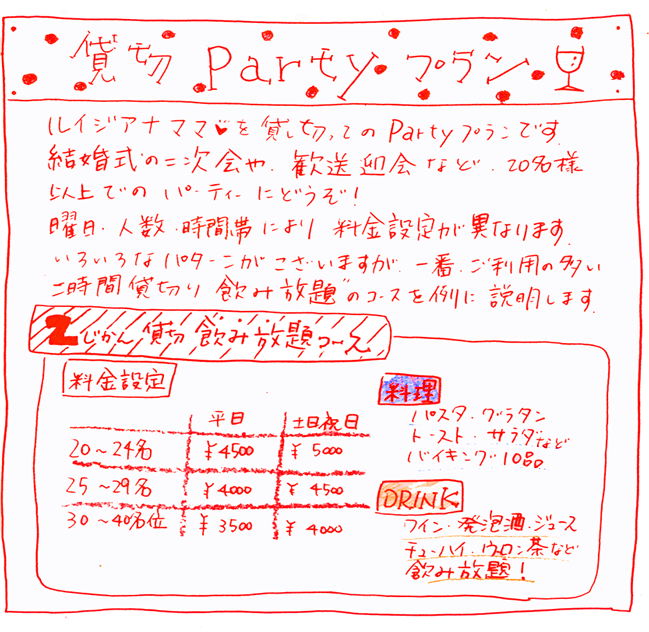 貸切 Party プラン
ルイジアナママ♥を貸し切ってのPartyプランです
結婚式の二次会や、歓送迎会など、20名様
以上でのパーティーにどうぞ!
曜日・人数・時間帯により料金設定が異なります.
いろいろなパターンがございますが、一番、ご利用の多い
二時間貸切り 飲み放題"のコースを例に説明します.
2じかん 貸切 飲み放題コース
料金設定
平日 土日祝日
20～24名 ¥4500 ¥5000
25～29名 ¥4000 ¥4500
30～40名位 ¥3500 ¥4000
料理
パスタ・グラタン
トースト・サラダなど
バイキング10品
DRINK
ワイン・発泡酒・ジュース
チューハイ・ウロン茶など
飲み放題!